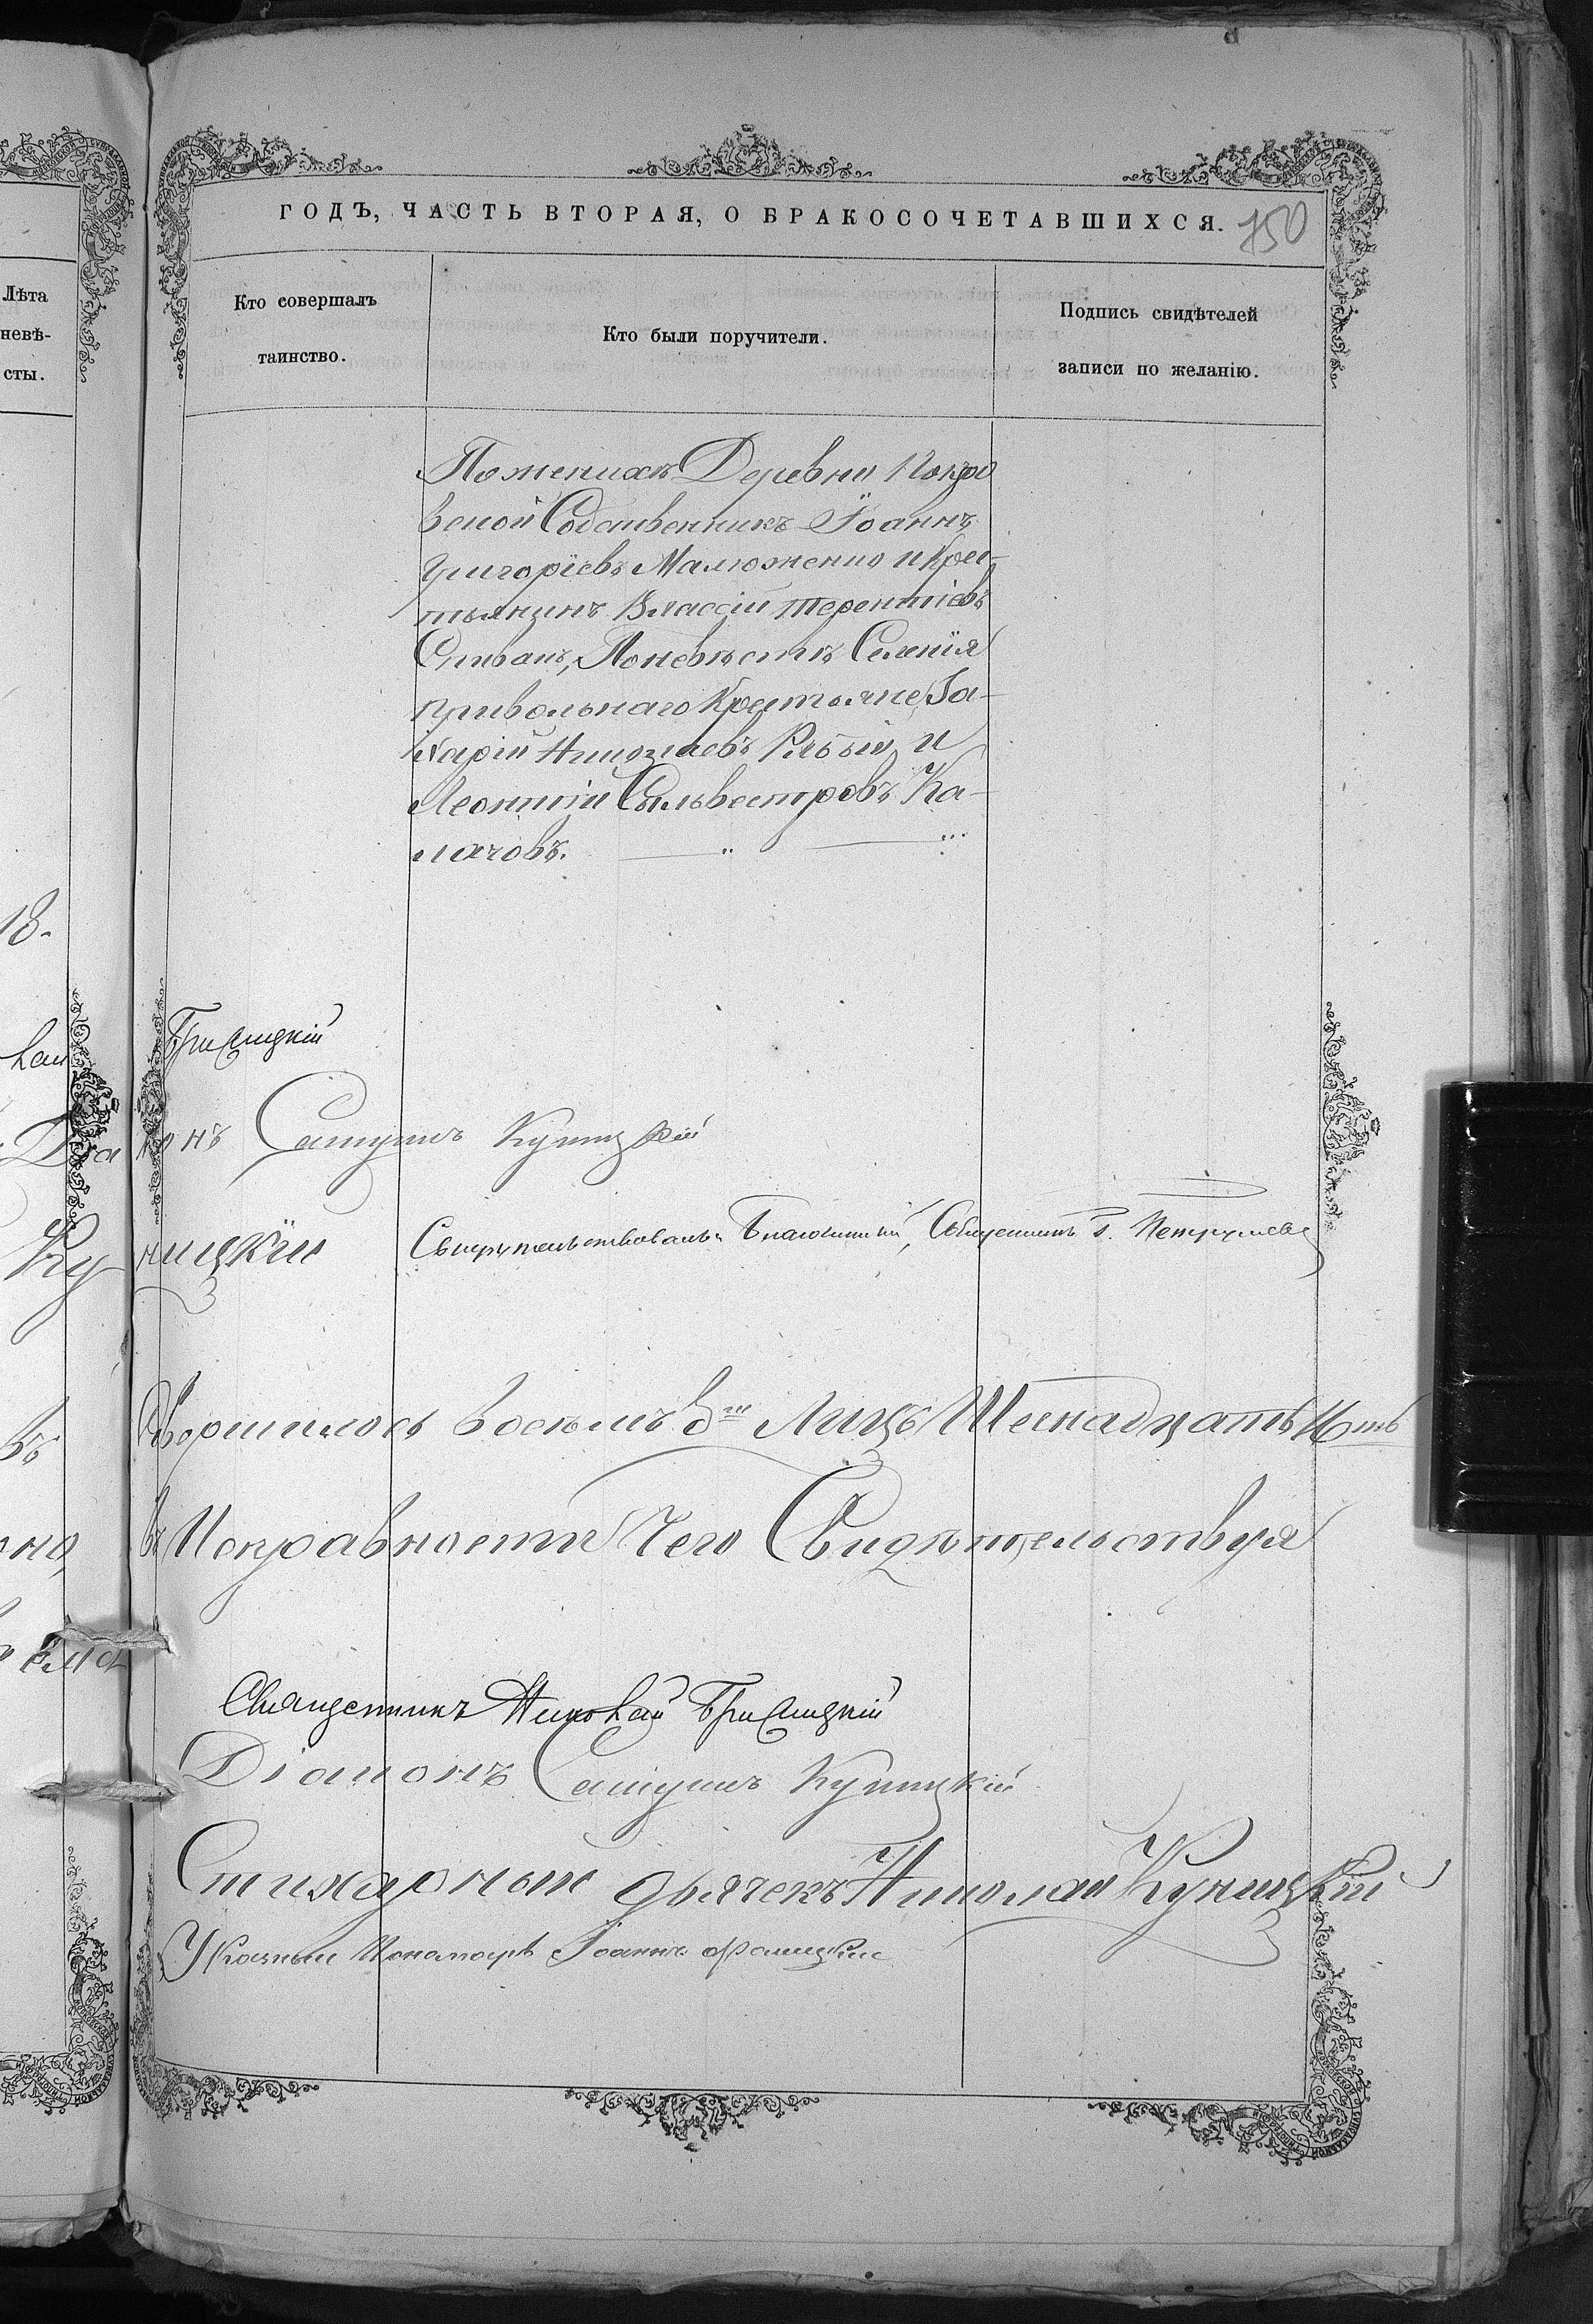 ГОДЪ, ЧАСТЬ ВТОРАЯ, О БРАКОСОЧЕТАВШИХСЯ. 750
Лѣта
невѣ-
сты.
Кто совершалъ
таинство.
Кто были поручители.
Подпись свидѣтелей
записи по желанію.
По женихѣ Деревни Покро
вской Собственникъ Іоаннъ
Григоріевъ Малюженко и Крес-
тьянинъ Власій Терентіевъ
По невѣстѣ Селенія
Привольнаго Крестьяне За-
харій Николаевъ Рябый и
Леонтій Сильвестровъ Ка-
лачовъ.
18.
Діаконъ Куницкій
Куницкій
Благочинный, Священникъ
вершилось восемь 8мь Лицъ Шеснадцать 16ть
въ Исправности Чего Свидѣтельствуя
Священникъ Николай
Діаконъ Куницкій
Стихарный дьячекъ Николай Куницкій
Указный Пономарь Іоаннъ